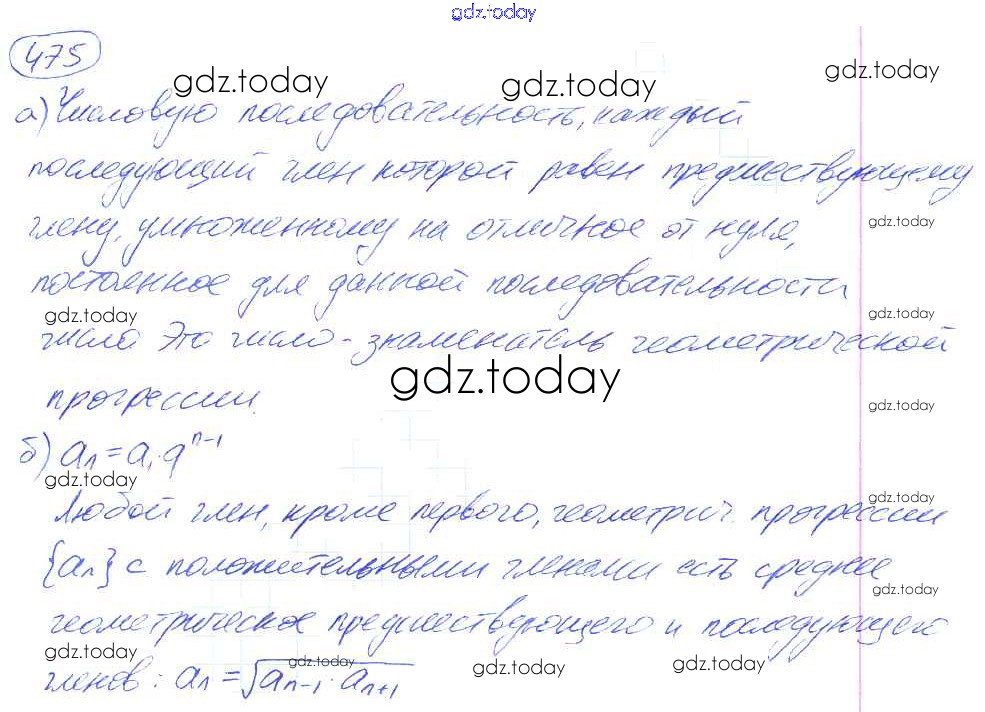 gdz.today
475
gdz.today gdz.today gdz.today
а) Числовую последовательность, каждый
последующий член которой равен предшествующему
члену, умноженному на отличное от нуля,
gdz.today
постоянное для данной последовательности
gdz.today gdz.today
числа Это число - знаменатель геометрической
gdz.today
прогрессии.
gdz.today
б) aₙ = a₁·qⁿ⁻¹
gdz.today
gdz.today
Любой член, кроме первого, геометрич. прогрессии
{aₙ} с положительными членами есть среднее
gdz.today
геометрическое предшествующего и последующего
gdz.today gdz.today gdz.today gdz.today
членов: aₙ = √(aₙ₋₁·aₙ₊₁)